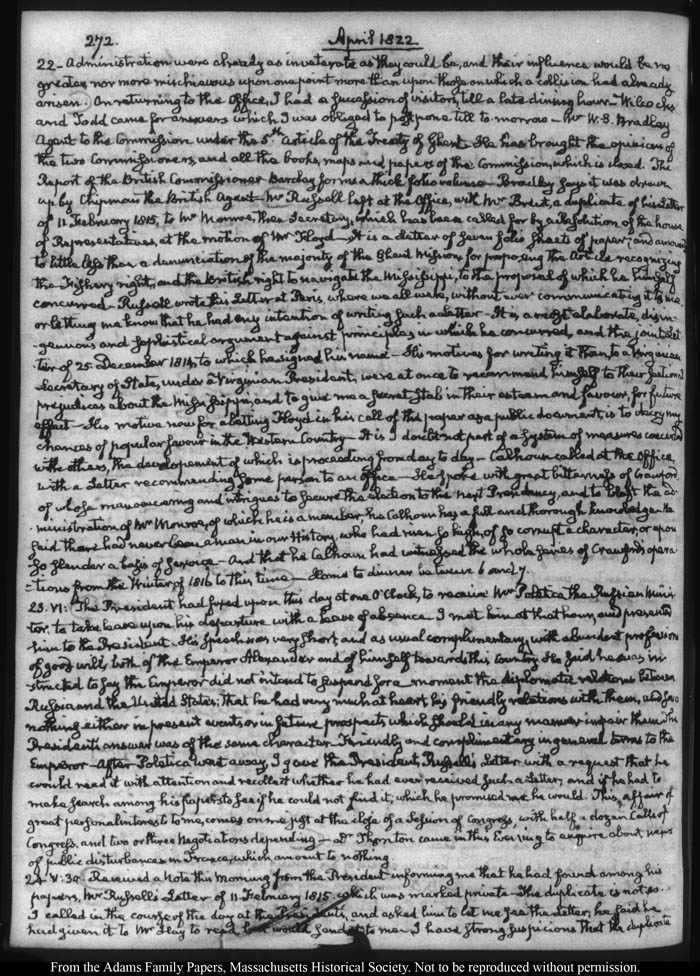 272.
April 1822
22 - Administration were already as inveterate as they could be, and their influence would be no
greater nor more mischievous upon one point more than upon those on which a collision had already
arisen. On returning to the Office, I had a succession of visitors, till a late dining hour - Wilcocks
and Todd came for answers which I was obliged to postpone till to morrow - Mr W. S. Bradley
Agent to the Commission under the 5th article of the Treaty of Ghent. He has brought the opinions of
the two Commissioners, and all the books, maps and papers of the Commission, which is closed. The
Report of the British Commissioner Barclay forms a thick folio volume - Bradley says it was drawn
up by Chipman the British Agent - Mr Russell left at the Office, with Mr Brent, a duplicate of his Letter
of 11. February 1815, to Mr Monroe, then Secretary, which has been called for by a Resolution of the house
of Representatives, at the motion of Mr Floyd - It is a Letter of seven folio sheets of paper; and amounts
to little less than a denunciation of the majority of the Ghent Mission, for proposing the Article recognizing
the Fishery right, and the British right to navigate the Mississippi, to the proposal of which he himself
concurred - Russell wrote his Letter at Paris, where we all were, without ever communicating it to me,
or letting me know that he had any intention of writing such a Letter - It is a most elaborate, disin-
genuous and sophistical argument against principles in which he concurred, and the joint Let-
ter of 25. December 1814, to which he signed his name - His motives for writing it then, to a Virginian
Secretary of State, under a Virginian President, were at once to recommend himself to their sectional
prejudices about the Mississippi, and to give me a secret stab in their esteem and favour, for future
effect - His motive now for abetting Floyd in his call of this paper as a public document, is to decry my
chances of popular favour in the Western Country - It is I doubt not part of a System of measures concerted
with others, the developement of which is proceeding from day to day - Calhoun called at the Office,
with a Letter recommending some person to an Office - He spoke with great bitterness of Crawford,
of whose manoeuvering and intrigues to secure the election to the next Presidency, and to blast the ad-
ministration of Mr Monroe, of which he is a member, he Calhoun has a full and thorough knowledge. He
said there had never been a man in our History, who had risen so high, of so corrupt a character, or upon
so slender a basis of service - And that he Calhoun had witnessed the whole series of Crawford's opera-
tions from the Winter of 1816 to this time - Home to dinner between 6 and 7.
23. VI: The President had fixed upon this day at one O'Clock, to receive Mr Poletica the Russian Minis-
ter, to take leave upon his departure with a leave of absence. I met him at that hour, and presented
him to the President. His speech was very short, and as usual complimentary, with abundant profession
of good will, both of the Emperor Alexander and of himself towards this Country. He said he was in-
structed to say the Emperor did not intend to suspend for a moment the diplomatic relations between
Russia and the United States; that he had very much at heart his friendly relations with them, and saw
nothing either in present events or in future prospects which should in any manner impair them. The
President's answer was of the same character - Friendly and complimentary in general terms to the
Emperor - After Poletica went away, I gave the President, Russell's Letter with a request that he
would read it with attention and recollect whether he had ever received such a Letter; and if he had to
make search among his papers to see if he could not find it, which he promised me he would. This affair of
great personal interest to me, comes on me just at the close of a Session of Congress, with half a dozen Calls of
Congress, and two or three Negotiations depending - Dr Thornton came in this Evening to enquire about news
of public disturbances in France, which amount to nothing.
24. V:30. Received a Note this Morning from the President informing me that he had found among his
papers, Mr Russell's Letter of 11. February 1815. which was marked private - The duplicate is not so.
I called in the course of the day at the President's, and asked him to let me see the Letter; he said he
had given it to Mr Hay to read but would send it to me - I have strong suspicions that the duplicate
From the Adams Family Papers, Massachusetts Historical Society. Not to be reproduced without permission.